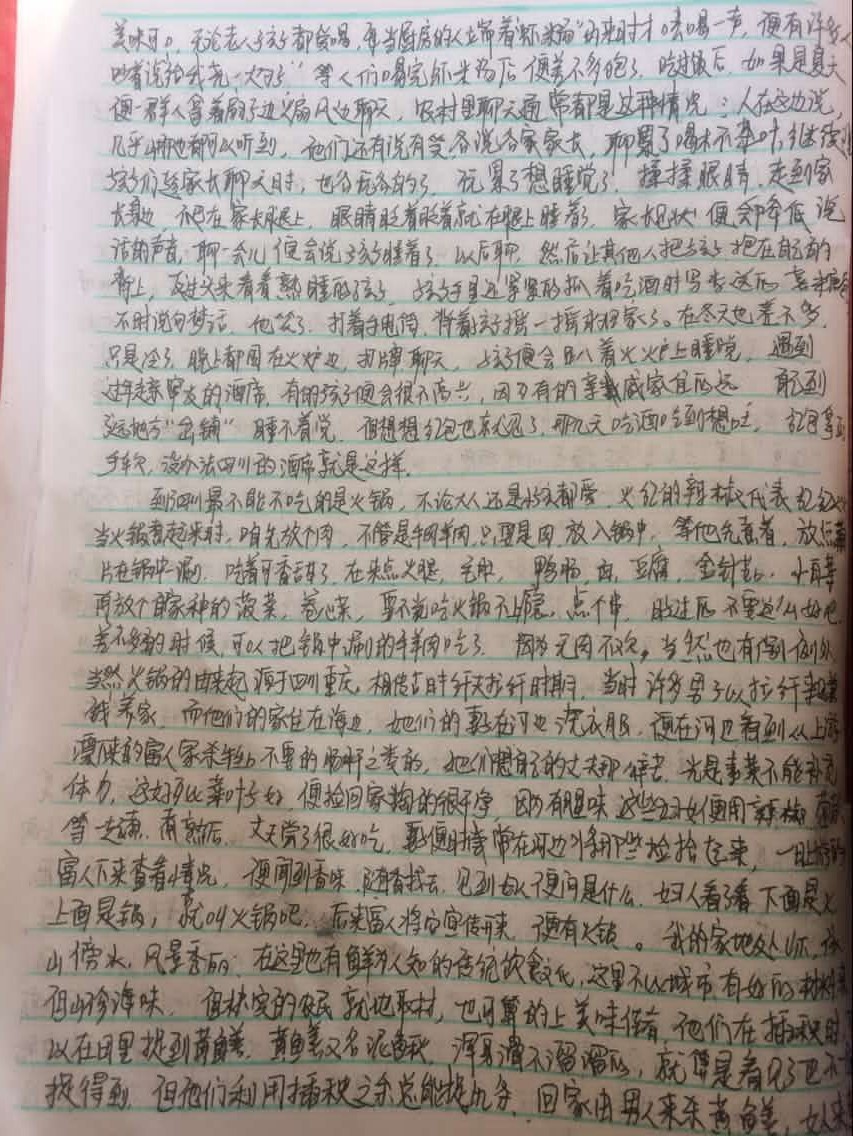 美味可口,无论老人孩子都爱喝,每当厨房的人端着“虾米汤”出来时才吆喝一声,便有许多人
吆着说给我先一大勺”等人们喝完虾米汤后便差不多饱了,吃过饭后,如果是夏天
便一群人拿着扇子边扇风边聊天,农村里聊天通常都是这种情况:人在这边说,
几乎山那边都可以听到,他们还有说有笑,各说各家家长,聊累了喝
孩子们趁家长聊天时,也各玩各的了,玩累了想睡觉了,揉揉眼睛,走到家
长身边,爬在家长腿上,眼睛眨着眨着就在腿上睡着了,家长见状便会降低说
话的声音,聊一会儿便会说孩子睡着了,以后聊,然后让其他人把孩子抱在自己的
背上,反过头来看着熟睡的孩子,孩子手里还紧紧的抓着吃酒时
不时说句梦话,他笑了,打着手电筒,背着孩子摇一摇的回家了。在冬天也差不多,
只是冷了,晚上都围在火炉边,打牌聊天,孩子便会趴着火炉上睡觉,遇到
过年走亲串友的酒席,有的孩子便会很不高兴,因为有的亲戚家住的远,
远地方“歇铺”睡不着觉,但想想红包也就忍了,那几天吃酒吃到想吐,红包拿到
手软,没办法四川的酒席就是这样。
到四川最不能不吃的是火锅,不论大人还是孩子都爱,火红的辣椒代表
当火锅煮起来时,咱先放个肉,不管是牛肉羊肉,只要是肉放入锅中,等他先煮着,放点
片在锅中涮,吃着可香甜了,在来点火腿,毛肚,鸭肠,肉,豆腐,金针菇,
再放个自家种的菠菜,卷心菜,要不说吃火锅不上瘾,点个串,
差不多的时候,可以把锅中涮的牛羊肉吃了,因为无肉不欢。当然也有例外
当然火锅的由来起源于四川重庆。相传古时纤夫拉纤时期,当时许多男子以拉纤
钱养家,而他们的家住在海边,她们的妻在河边洗衣服,便在河边看到从上游
漂下来的富人家杀牛不要的肠肝之类的,她们想自己的丈夫那么辛苦,光是素菜不能补充
体力,这好歹比菜叶子好,便捡回家掏的很干净,因为有腥味这些妇女便用辣椒,
等一起煮,煮熟后,丈夫尝了很好吃,妻便时常常在河边将那些捡拾起来,一日上游的
富人下来查看情况,便闻到香味,随香找去,见到女人便问是什么,妇人看了看下面是火
上面是锅,就叫火锅吧,后来富人将它宣传开来,便有火锅。我的家地处山区,依
山傍水,风景秀丽,在这里也有鲜为人知的传统饮食文化,这里不比城市有好的材料
但山珍海味,但朴实的农民就地取材,也可算的上美味佳肴,他们在插秧时
以在田里捉到黄鳝,黄鳝又名泥鳅,浑身滑不溜溜的,就算是看见了也不
捉得到,但他们利用插秧之余总能捉几条,回家由男人来杀黄鳝,女人来